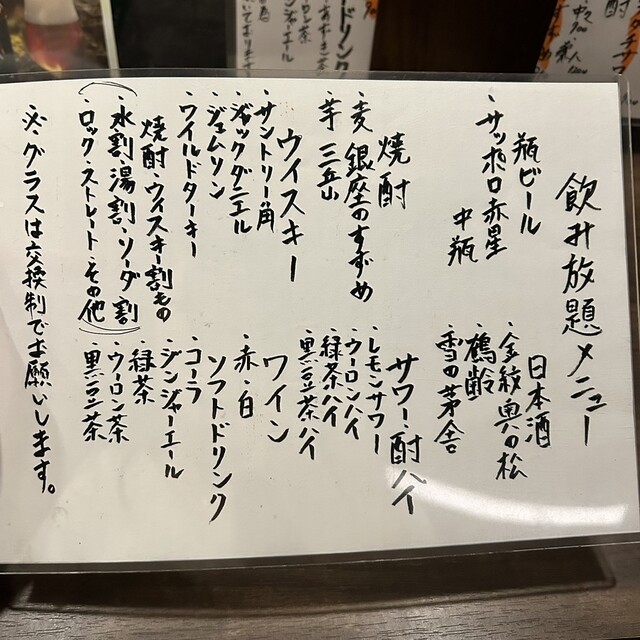 飲み放題メニュー
瓶ビール
・サッポロ赤星
中瓶
焼酎
・麦 銀座のすずめ
・芋 三岳
ウイスキー
・サントリー角
・ジャックダニエル
・ジェムソン
・ワイルドターキー
焼酎・ウイスキー割もの
(・水割・湯割・ソーダ割
・ロック・ストレート・その他)
日本酒
・金紋奥の松
・鶴齢
・雪の茅舎
サワー・酎ハイ
・レモンサワー
・ウーロンハイ
・緑茶ハイ
・黒豆茶ハイ
ワイン
・赤・白
ソフトドリンク
・コーラ
・ジンジャーエール
・緑茶
・ウーロン茶
・黒豆茶
※グラスは交換制でお願いします。